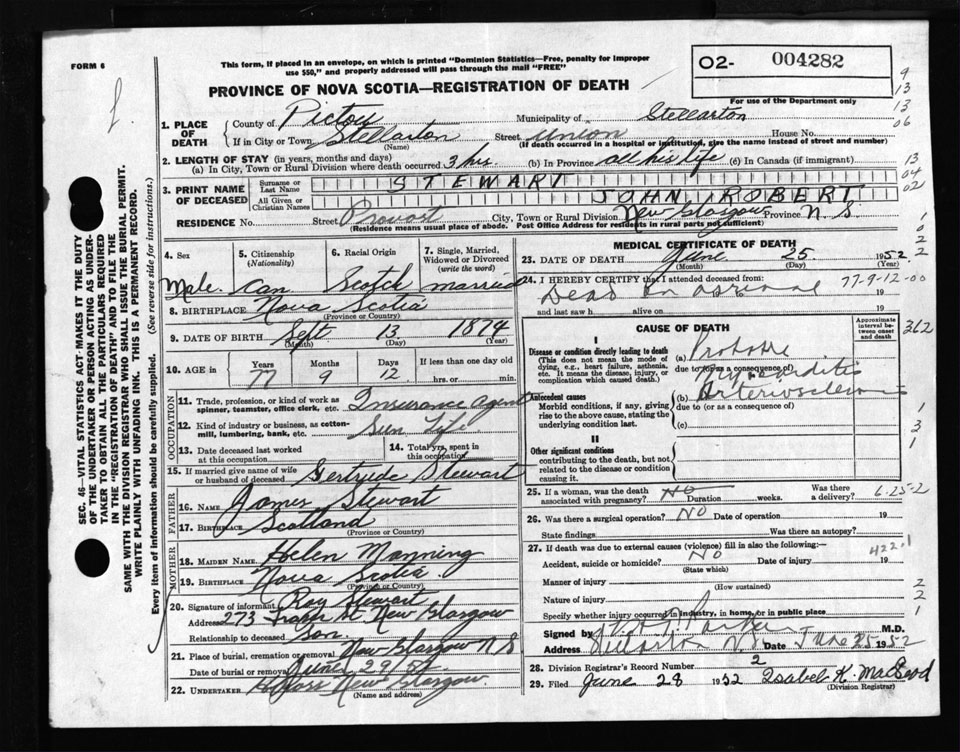 FORM 6
This form, if placed in an envelope, on which is printed "Dominion Statistics—Free, penalty for improper
use $50," and properly addressed will pass through the mail "FREE"
PROVINCE OF NOVA SCOTIA—REGISTRATION OF DEATH
O2- 004282
For use of the Department only
9
13
13
06
1. PLACE OF DEATH
County of Pictou Municipality of Stellarton
If in City or Town Stellarton (Name) Street Union House No.
(If death occurred in a hospital or institution, give the name instead of street and number)
2. LENGTH OF STAY (in years, months and days)
(a) In City, Town or Rural Division where death occurred 3 hrs. (b) In Province all his life (c) In Canada (if immigrant)
13
04
02
3. PRINT NAME OF DECEASED
Surname or Last Name STEWART
All Given or Christian Names JOHN ROBERT
RESIDENCE No. Street Provost City, Town or Rural Division New Glasgow Province N.S.
(Residence means usual place of abode. Post Office Address for residents in rural parts not sufficient)
4. Sex Male
5. Citizenship (Nationality) Can
6. Racial Origin Scotch
7. Single, Married, Widowed or Divorced (write the word) married
8. BIRTHPLACE Nova Scotia
(Province or Country)
9. DATE OF BIRTH Sept 13 1874
(Month) (Day) (Year)
10. AGE in Years 77 Months 9 Days 12 If less than one day old hrs. or min.
OCCUPATION
11. Trade, profession, or kind of work as spinner, teamster, office clerk, etc. Insurance agent
12. Kind of industry or business, as cotton-mill, lumbering, bank, etc. Sun Life
13. Date deceased last worked at this occupation
14. Total yrs. spent in this occupation
15. If married give name of wife or husband of deceased Gertrude Stewart
FATHER
16. NAME James Stewart
17. BIRTHPLACE Scotland
(Province or Country)
MOTHER
18. MAIDEN NAME Helen Manning
19. BIRTHPLACE Nova Scotia
(Province or Country)
20. Signature of informant Roy Stewart
Address 273 New Glasgow
Relationship to deceased Son
21. Place of burial, cremation or removal New Glasgow N S
Date of burial or removal June 29/52
22. UNDERTAKER New Glasgow
(Name and address)
MEDICAL CERTIFICATE OF DEATH
23. DATE OF DEATH June 25 1952
(Month) (Day) (Year)
24. I HEREBY CERTIFY that I attended deceased from: 77-9-12-00
Dead on arrival 19
and last saw h alive on 19
CAUSE OF DEATH
Approximate interval between onset and death
362
I
Disease or condition directly leading to death
(This does not mean the mode of dying, e.g., heart failure, asthenia, etc. It means the disease, injury, or complication which caused death.)
(a) Probable
due to (or as a consequence of) Myocarditis
Antecedent causes
Morbid conditions, if any, giving rise to the above cause, stating the underlying condition last.
(b) Arteriosclerosis
due to (or as a consequence of)
(c)
1
3
1
II
Other significant conditions
contributing to the death, but not related to the disease or condition causing it.
25. If a woman, was the death associated with pregnancy? NO Duration weeks. Was there a delivery? 6-25-2
26. Was there a surgical operation? NO Date of operation 19
State findings Was there an autopsy?
27. If death was due to external causes (violence) fill in also the following:— 422.1
Accident, suicide or homicide? NO Date of injury 19
(State which)
Manner of injury
(How sustained)
Nature of injury
Specify whether injury occurred in industry, in home, or in public place
2
2
1
Signed by M.D.
Address Stellarton N.S. Date June 25 1952
28. Division Registrar's Record Number 2
29. Filed June 28 1952 Isabel K. MacLeod
(Division Registrar)
SEC. 46—VITAL STATISTICS ACT MAKES IT THE DUTY
OF THE UNDERTAKER OR PERSON ACTING AS UNDER-
TAKER TO OBTAIN ALL THE PARTICULARS REQUIRED
IN THE "REGISTRATION OF DEATH" AND TO FILE THE
SAME WITH THE DIVISION REGISTRAR WHO SHALL ISSUE THE BURIAL PERMIT.
WRITE PLAINLY WITH UNFADING INK. THIS IS A PERMANENT RECORD.
Every item of information should be carefully supplied. (See reverse side for instructions.)